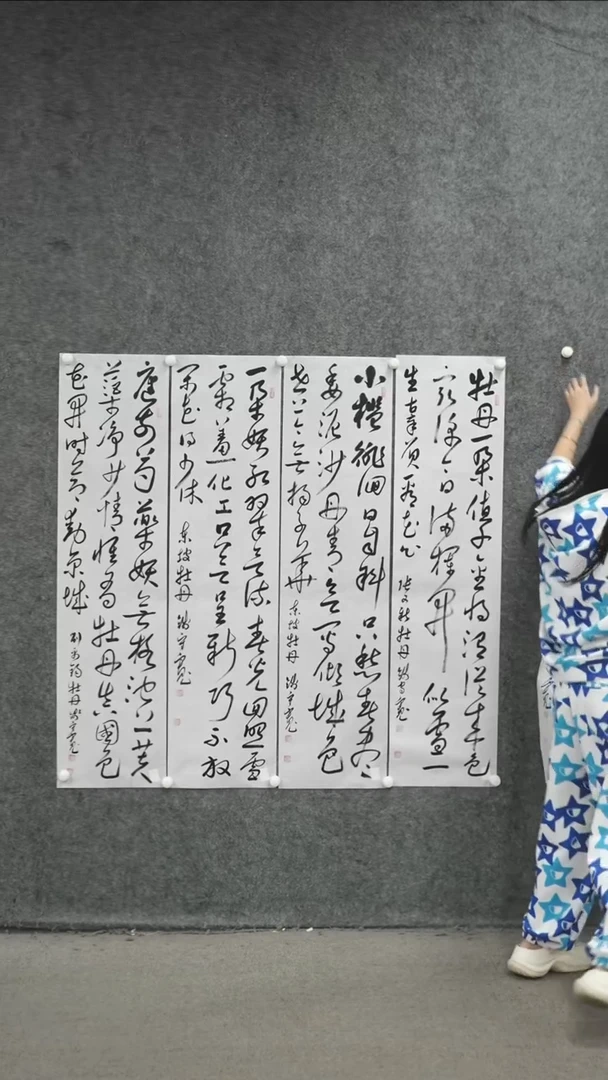 牡丹一朵值千金将谓從来色
最深今日满栏開似雪一
生辜負看花心 张又新牡丹
小檻徘徊日自斜只愁春尽
委泥沙丹青欲寫傾城色
世上今无楊子華 东坡牡丹
一朵妖红翠欲流春光回照雪
霜羞化工只欲呈新巧不放
闲花得少休 东坡牡丹
庭前芍藥妖无格池上芙
蕖净少情惟有牡丹真國色
花開时節動京城 刘禹錫牡丹